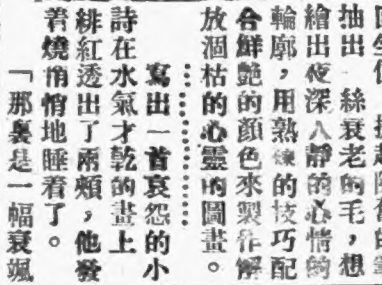 抽出 絲衰老的毛，想
繪出夜深人靜的心情的
輪廓，用熟練的技巧配
合鮮艷的顏色來製作解
放涸枯的心靈的圖畫。
…………
寫出一首哀怨的小
詩在水氣才乾的畫上
緋紅透出了兩頰，他發
着燒悄悄地睡着了。
「那裏是一幅衰颯